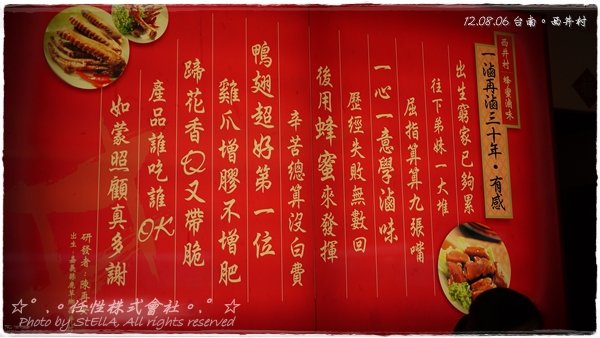 12.08.06 台南。西井村
西井村 蜂蜜滷味
一滷再滷三十年・有感
出生窮家已夠累
往下弟妹一大堆
屈指算算九張嘴
一心一意學滷味
歷經失敗無數回
後用蜂蜜來發揮
辛苦總算沒白費
鴨翅超好第一位
雞爪增膠不增肥
蹄花香Q又帶脆
產品誰吃誰OK
如蒙照顧真多謝
研發者：陳
出生：嘉義縣鹿草
☆°．。任性株式會社。．° ☆
Photo by StEllA, All rights reserved